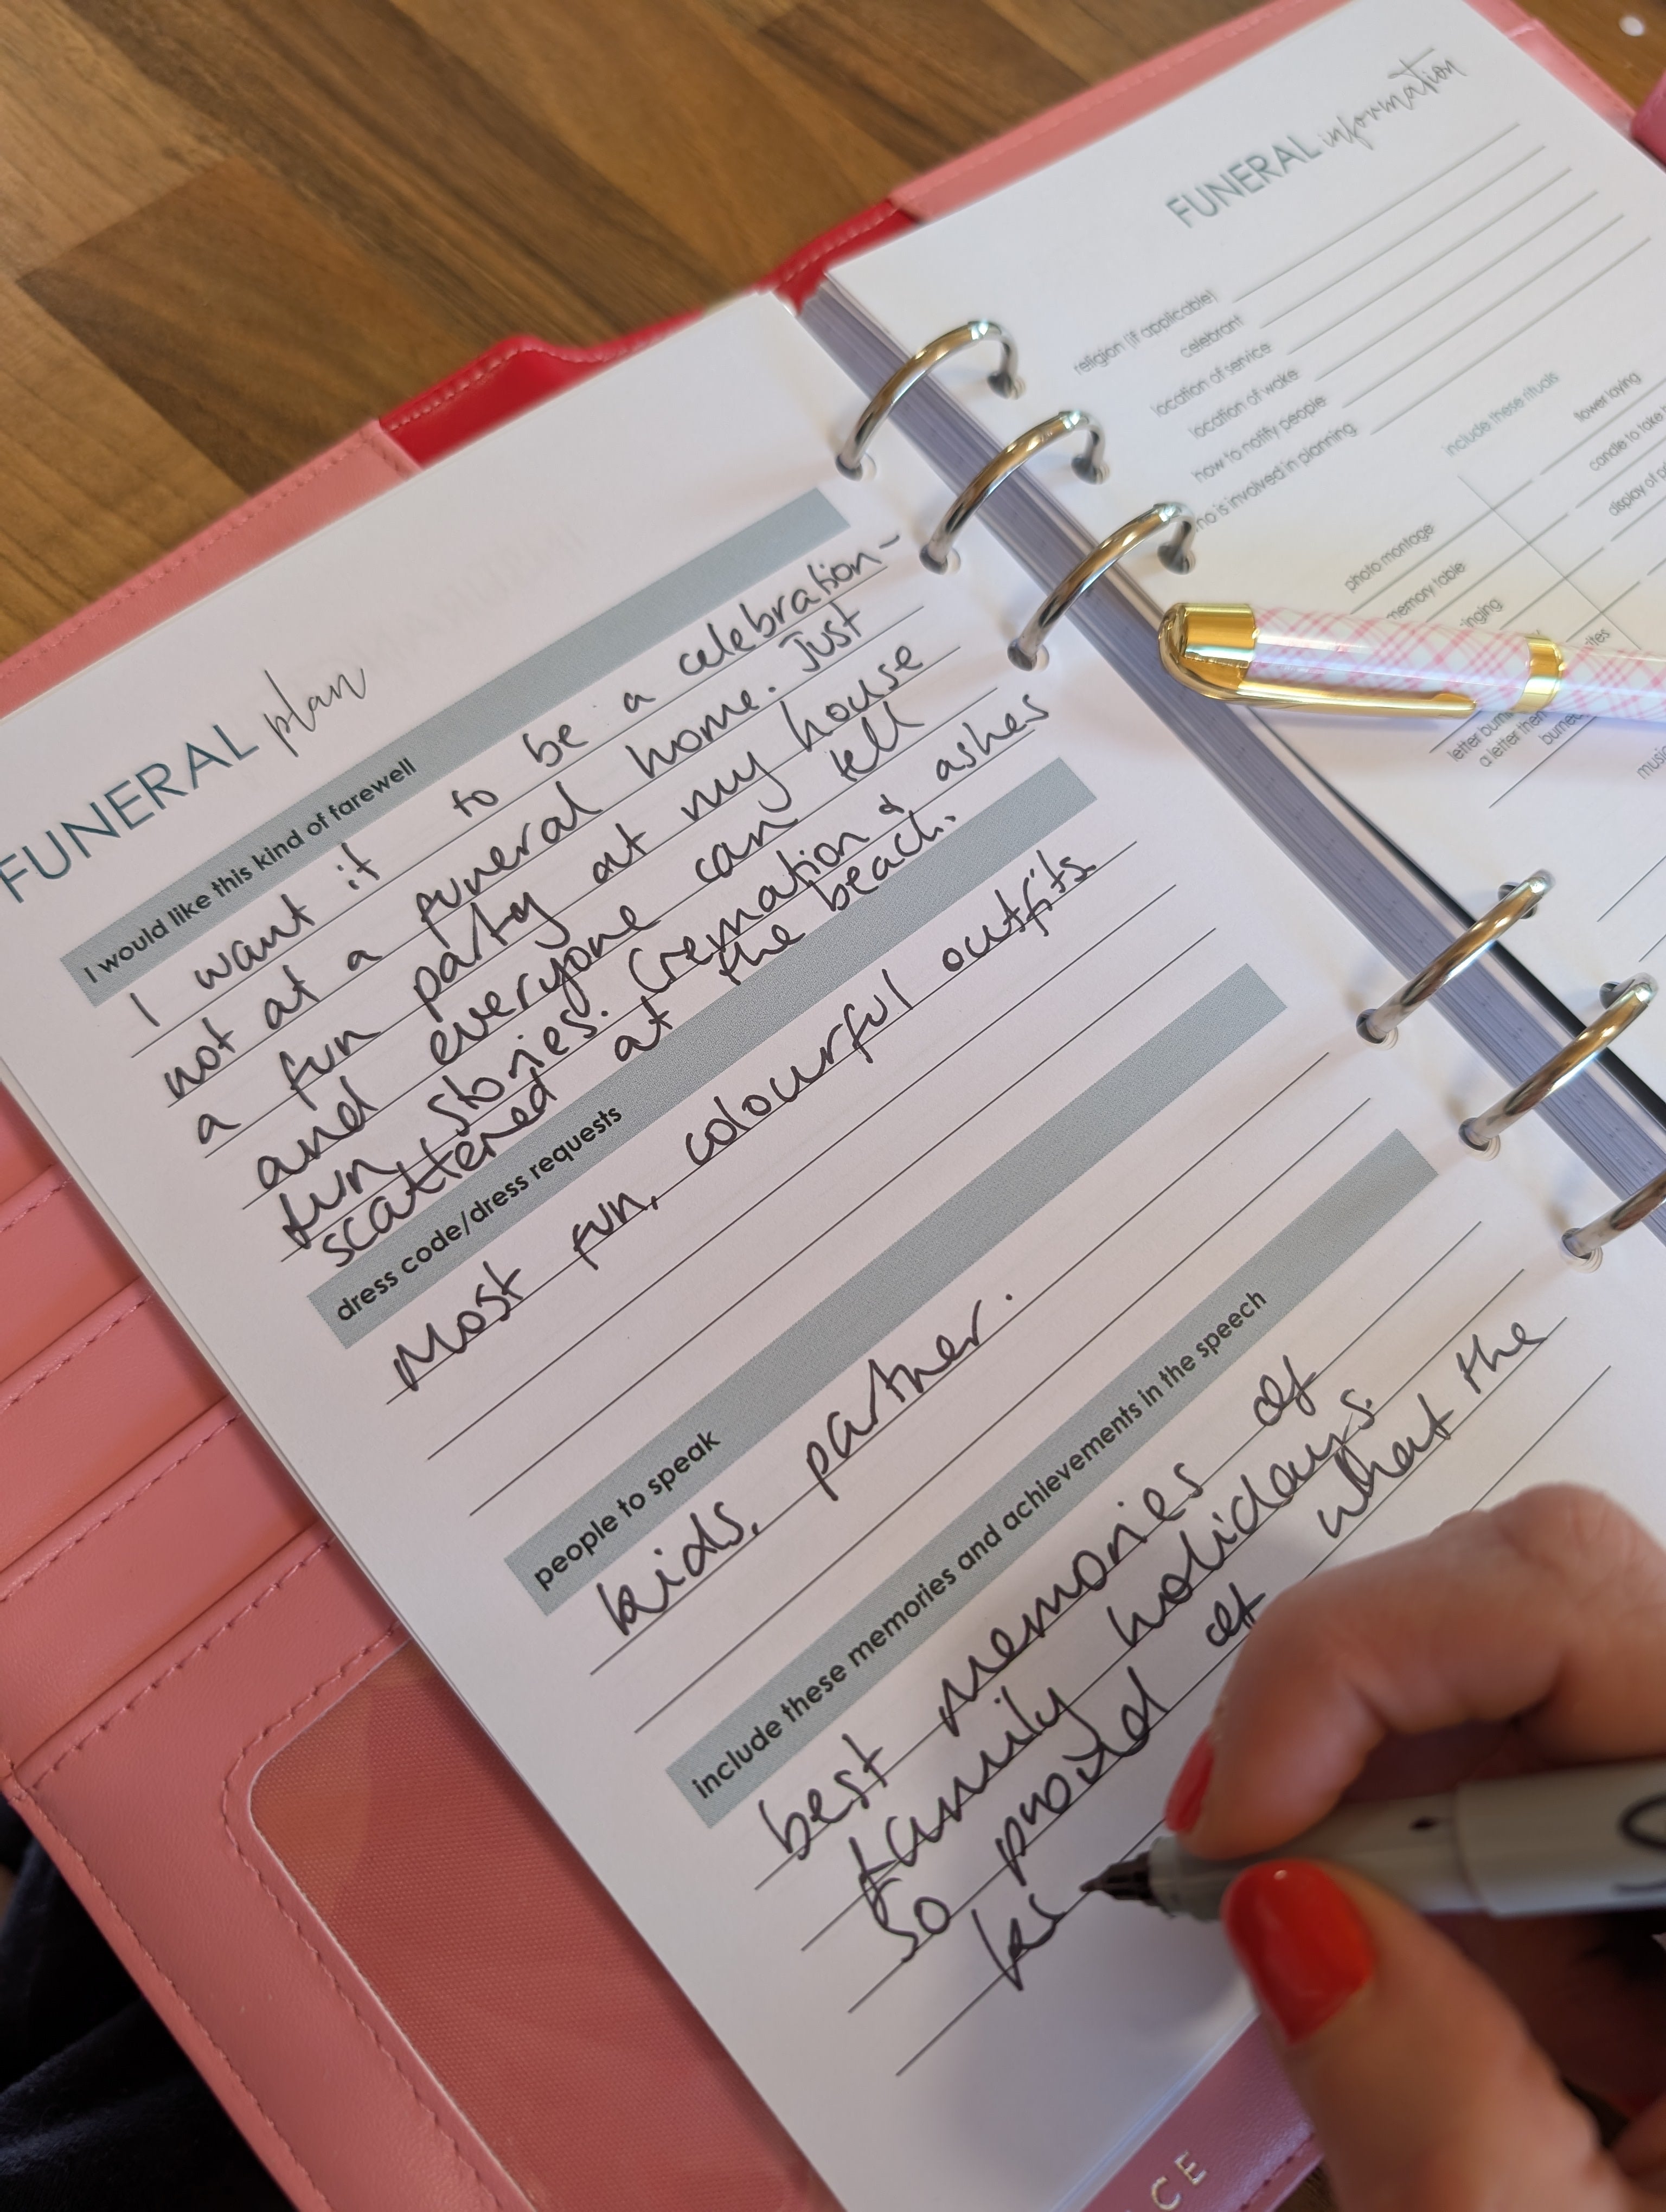 FUNERAL plan
I would like this kind of farewell
I want it to be a celebration -
not at a funeral home. Just
a fun party at my house
and everyone can tell
fun stories. Cremation & ashes
scattered at the beach.
dress code/dress requests
Most fun, colourful outfits
people to speak
kids, partner.
include these memories and achievements in the speech
best memories of
family holidays.
So proud of what the
FUNERAL information
religion (if applicable)
celebrant
location of service
location of wake
how to notify people
who is involved in planning
include these rituals
photo montage
memory table
candle to take
display of
letter
a letter then
burned